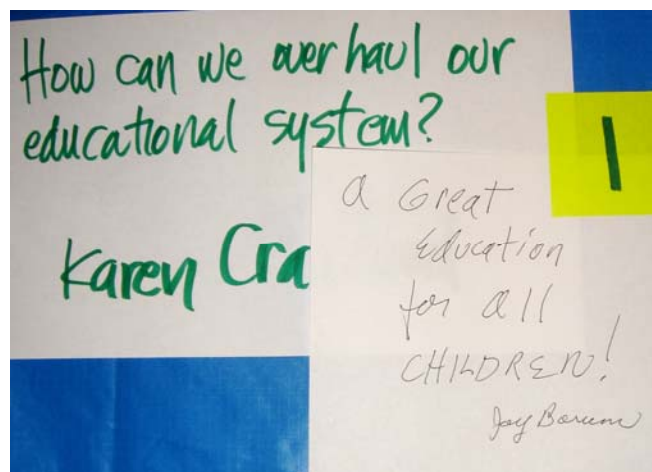 How can we overhaul our
educational system?
Karen Cra
1
a Great
Education
for all
CHILDREN!
Joy